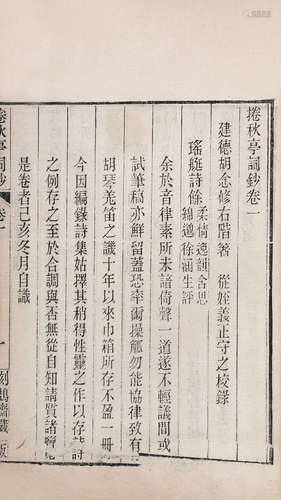 捲秋亭詞鈔卷一
建德胡念修右階著 從姪義正守之校錄
瑤艇詩餘 柔情逸韻舍思
綿邈 徐涵生評
余於音律素所未諳倚聲一道遂不輕議間或
試筆稿亦鮮留蓋恐率爾操觚勿能協律致有
胡琴羌笛之譏十年以來巾箱所存不盈一冊
今因編錄詩集姑擇其稍得性靈之作以存詩
之例存之至於合調與否無從自知請質諸
是卷者己亥冬月自識
捲秋亭詞鈔 卷一
一
刻鵠齋藏版